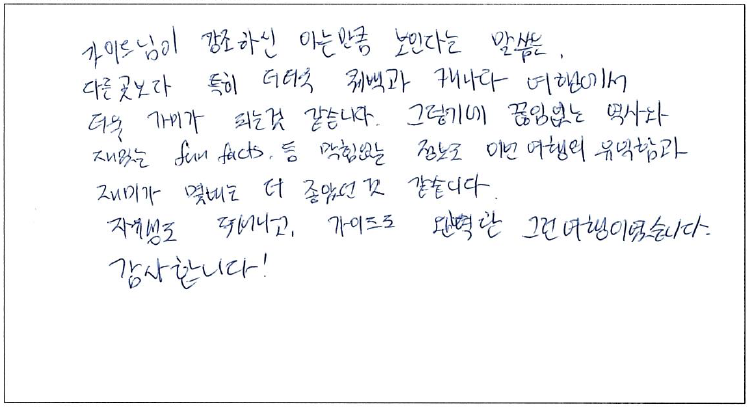 가이드님이 강조하신 아는만큼 보인다는 말씀은,
다른곳보다 특히 더더욱 퀘백과 캐나다 여행에서
더욱 가미가 되는것 같습니다. 그렇기에 끊임없는 역사와
재밌는 fun facts, 등 막힘없는 정보로 이번 여행의 유익함과
재미가 몇배는 더 좋았던 것 같습니다.
뛰어나고, 가이드도 완벽한 그런 여행이었습니다.
감사합니다!